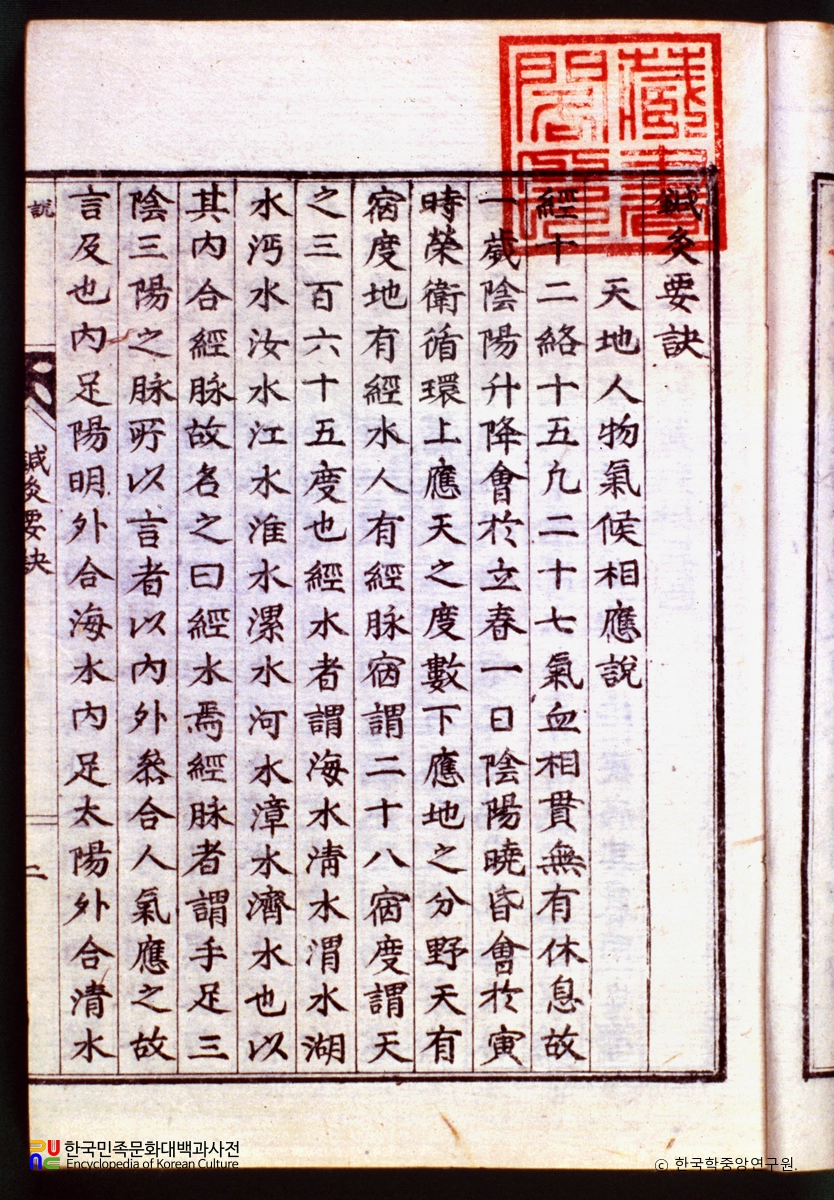 藏書
閣印
鍼灸要訣
天地人物氣候相應說
經十二絡十五凢二十七氣血相貫無有休息故
一歲陰陽升降會於立春一日陰陽曉昏會於寅
時榮衛循環上應天之度數下應地之分野天有
宿度地有經水人有經脉宿謂二十八宿度謂天
之三百六十五度也經水者謂海水淸水渭水湖
水沔水汝水江水淮水漯水河水漳水濟水也以
其內合經脉故名之曰經水焉經脉者謂手足三
陰三陽之脉所以言者以內外叅合人氣應之故
言及也內足陽明外合海水內足太陽外合清水
說
鍼灸要訣
二
한국민족문화대백과사전
Encyclopedia of Korean Culture
ⓒ 한국학중앙연구원.